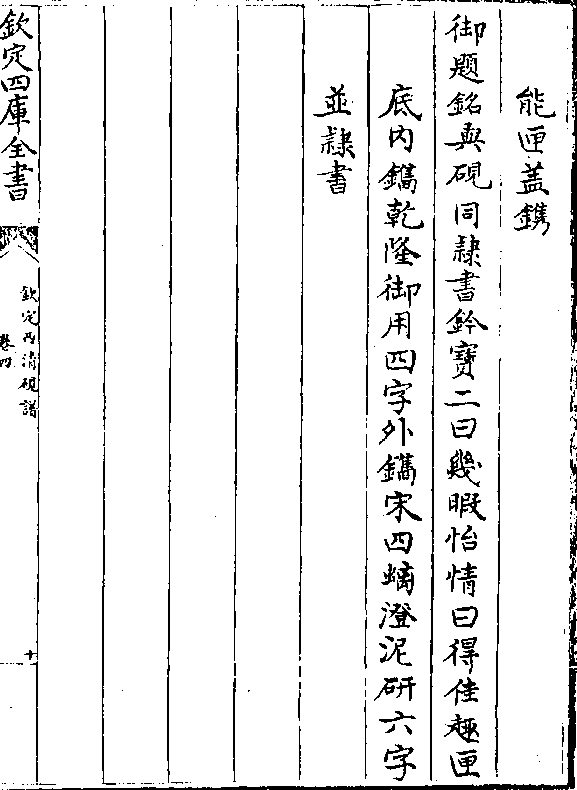 能匣蓋鐫
御題銘與硯同隷書鈐寳二曰幾暇怡情曰得佳趣匣
底内鐫乾隆御用四字外鐫宋四螭澄泥研六字
並隷書
欽定四庫全書
欽定西清硯譜
卷四
十